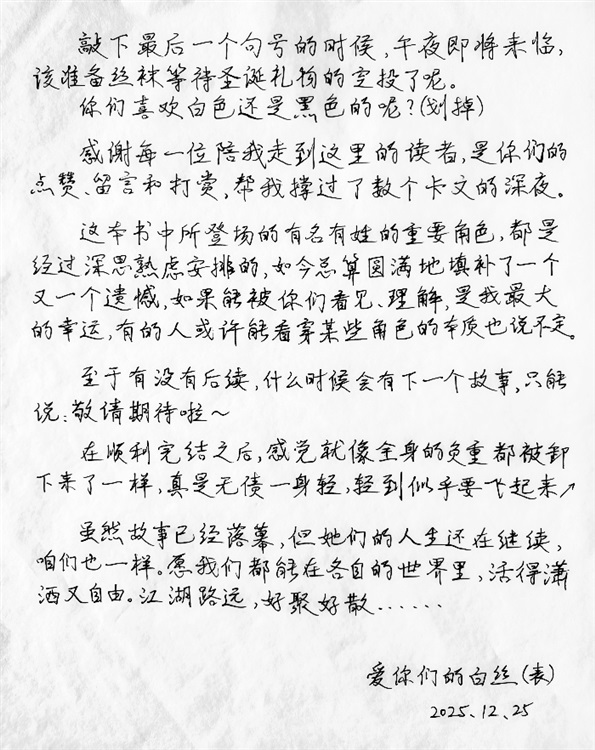 敲下最后一个句号的时候,午夜即将来临,
该准备丝袜等待圣诞礼物的空投了呢。
你们喜欢白色还是黑色的呢?(划掉)
感谢每一位陪我走到这里的读者,是你们的
点赞、留言和打赏,帮我撑过了数个卡文的深夜。
这本书中所登场的有名有姓的重要角色,都是
经过深思熟虑安排的,如今总算圆满地填补了一个
又一个遗憾,如果能被你们看见、理解,是我最大
的幸运,有的人或许能看穿某些角色的本质也说不定。
至于有没有后续,什么时候会有下一个故事,只能
说:敬请期待啦~
在顺利完结之后,感觉就像全身的负重都被卸
下来了一样,真是无债一身轻,轻到似乎要飞起来↗
虽然故事已经落幕,但她们的人生还在继续,
咱们也一样。愿我们都能在各自的世界里,活得潇
洒又自由。江湖路远,好聚好散……
爱你们的白丝(表)
2025.12.25